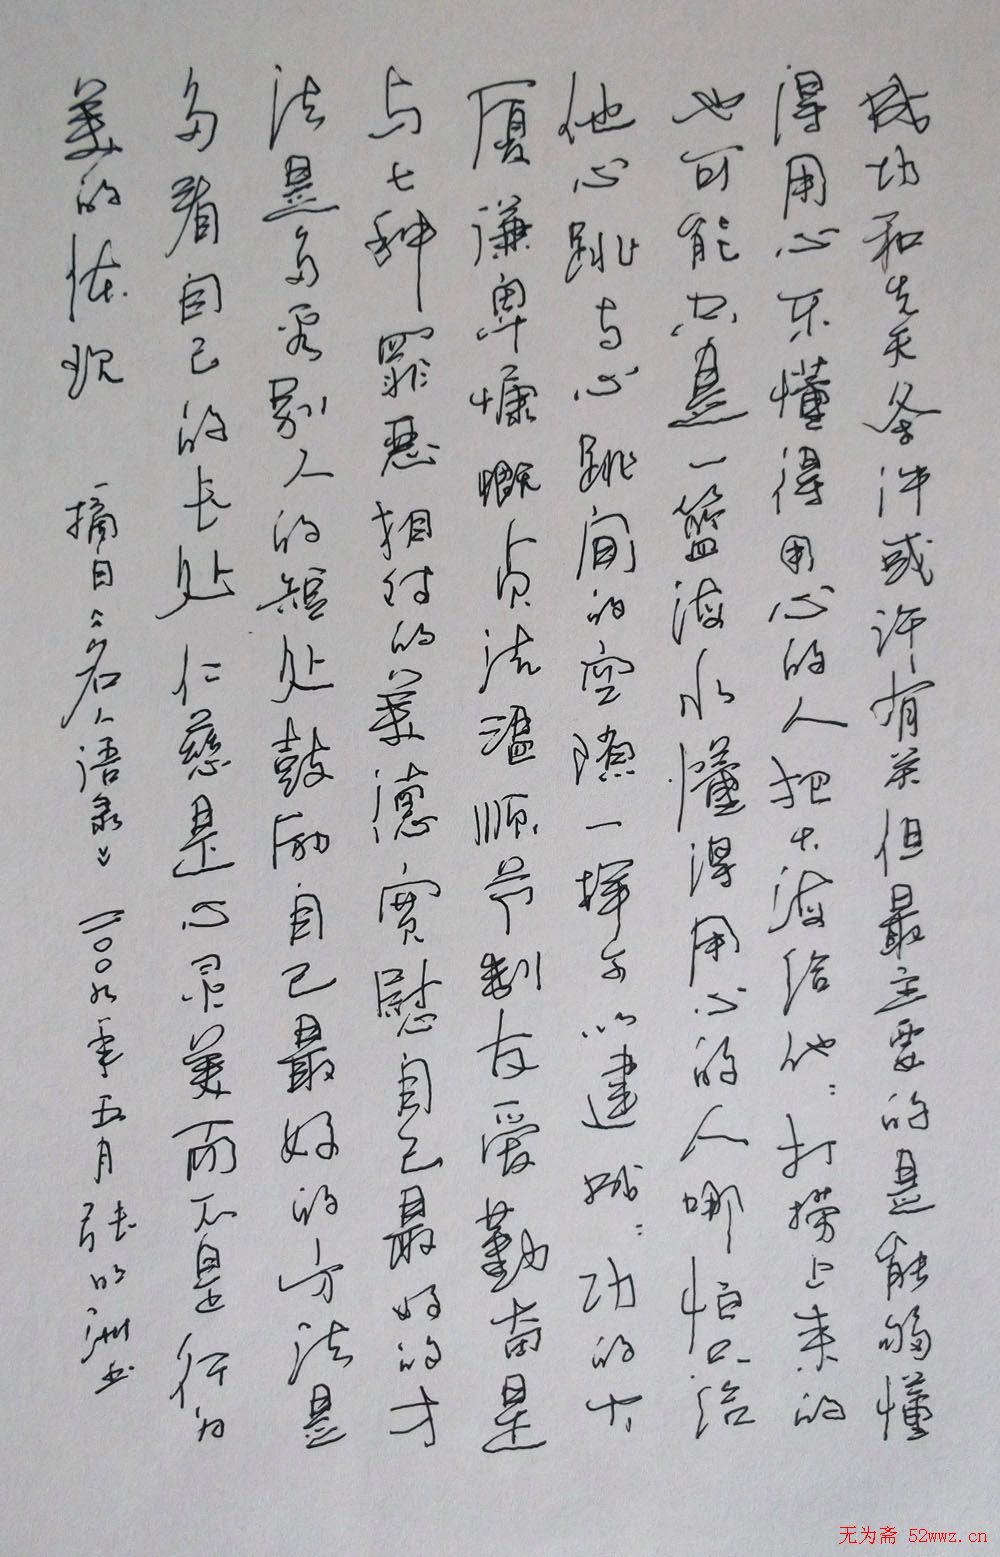 成功和先天条件或许有关但最主要的是能够懂
得用心不懂得用心的人把大海给他:打捞上来的
也可能只是一篮海水懂得用心的人哪怕只给
他心跳与心跳间的空隙一样可以建成:功的大
厦谦卑慷慨贞洁温顺节制友爱勤奋是
与七种罪恶相对的美德實慰自己最好的方
法是多看别人的短处鼓励自己最好的方法是
多看自己的长处仁慈是心灵美而不是行为
美的体现
摘自《名人语录》二〇〇九年五月张的洲书
无为斋 52wwz.cn